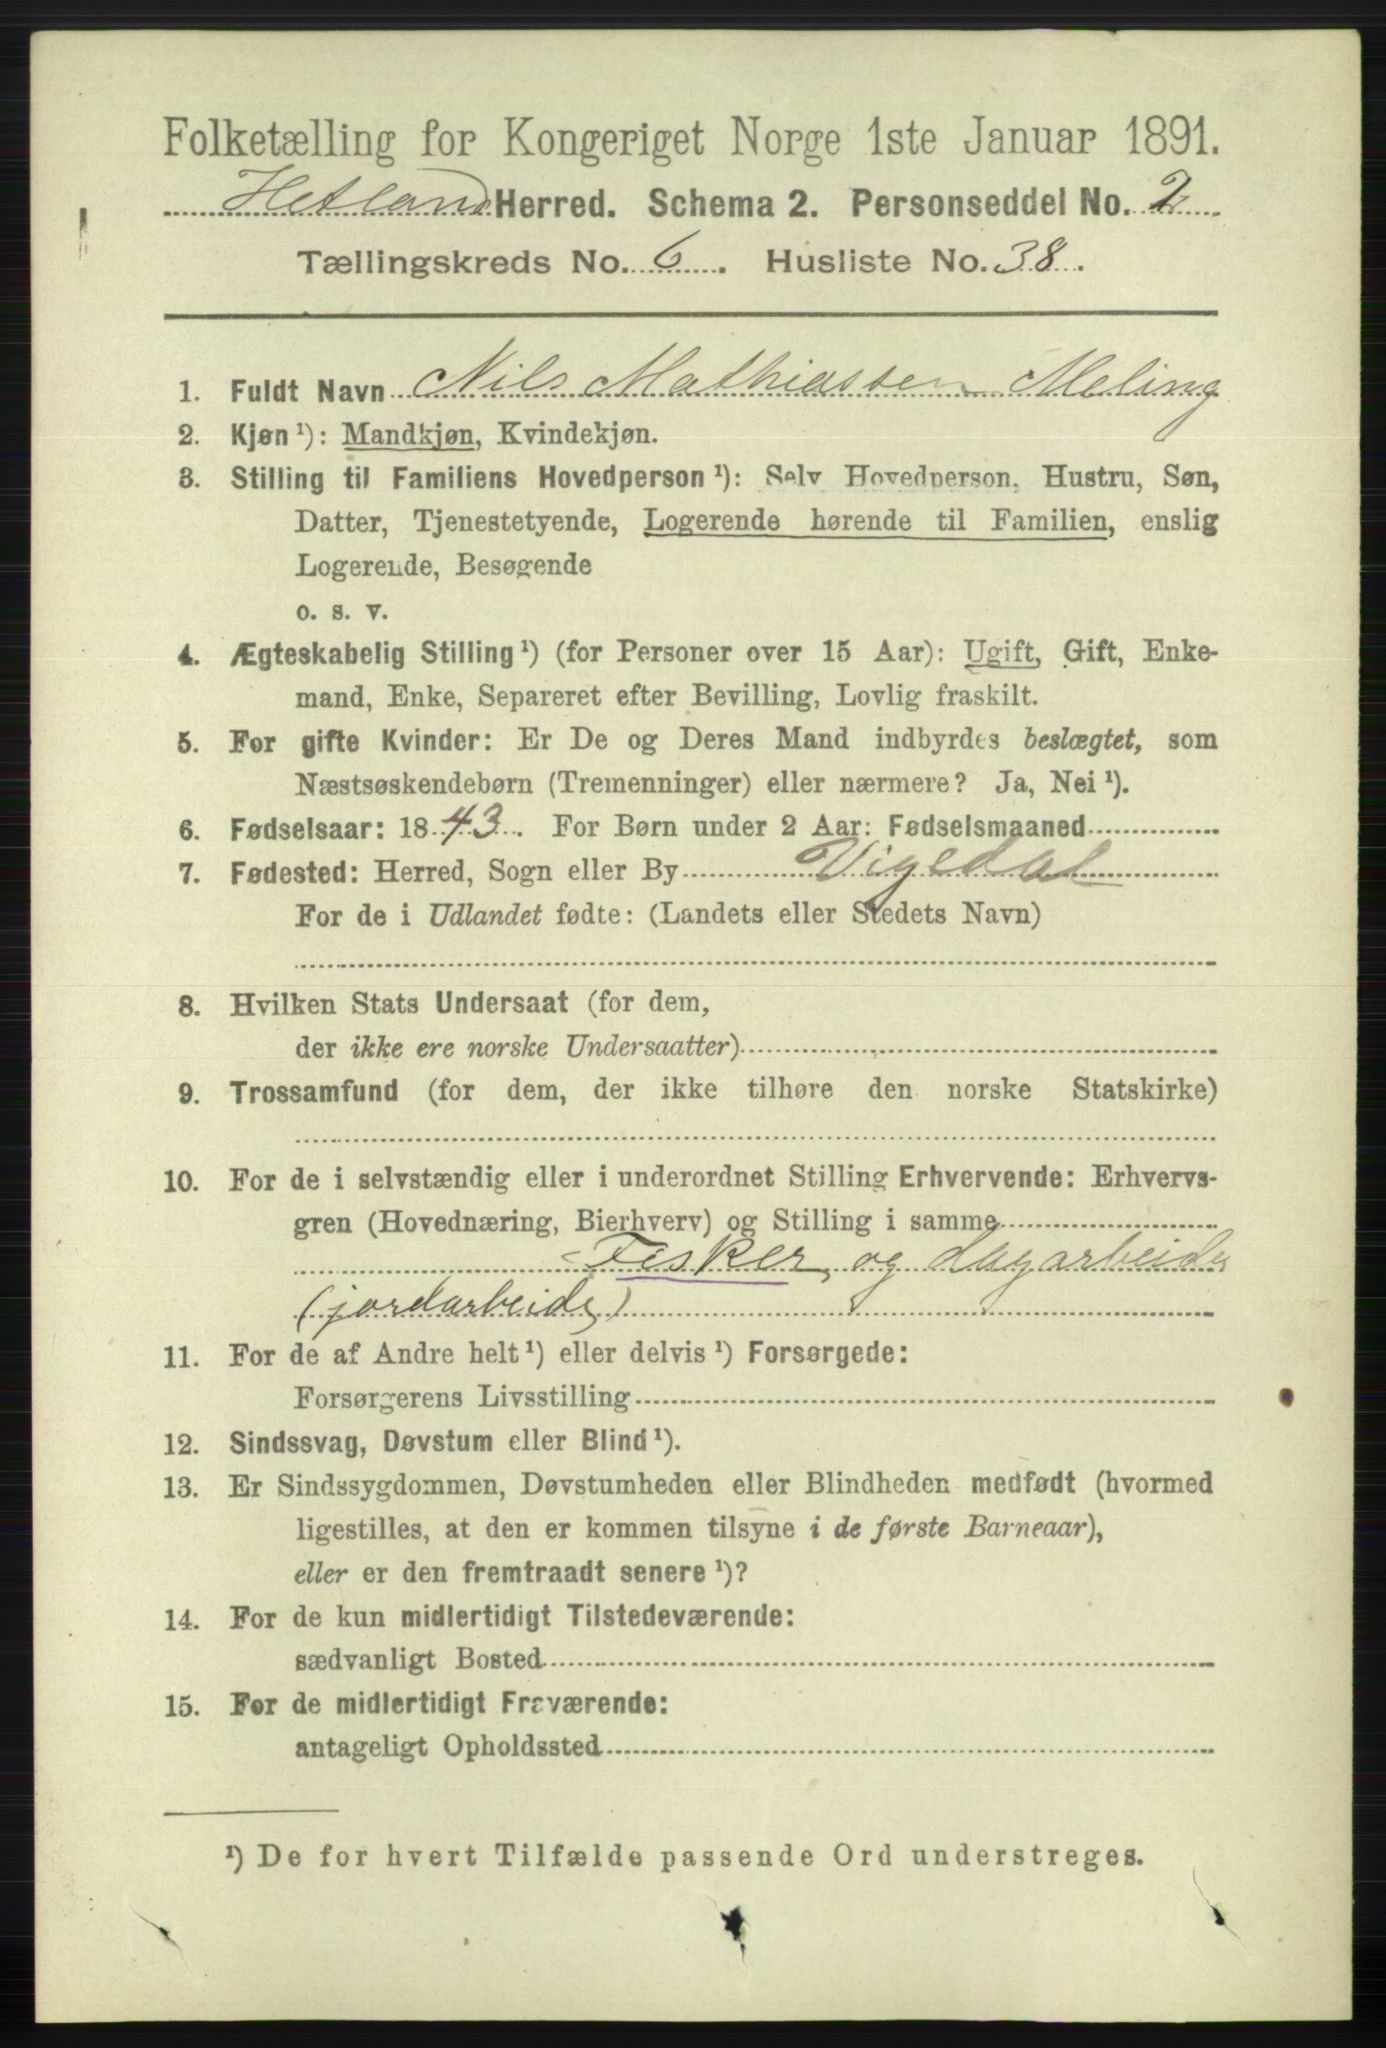 Folketælling for Kongeriget Norge 1ste Januar 1891.
Hetland Herred. Schema 2. Personseddel No. 2
Tællingskreds No. 6. Husliste No. 38.
1. Fuldt Navn Nils Mathiassen Meling
2. Kjøn¹): Mandkjøn, Kvindekjøn.
3. Stilling til Familiens Hovedperson¹): Selv Hovedperson, Hustru, Søn,
Datter, Tjenestetyende, Logerende hørende til Familien, enslig
Logerende, Besøgende
o. s. v.
4. Ægteskabelig Stilling¹) (for Personer over 15 Aar): Ugift, Gift, Enke-
mand, Enke, Separeret efter Bevilling, Lovlig fraskilt.
5. For gifte Kvinder: Er De og Deres Mand indbyrdes beslægtet, som
Næstsøskendebørn (Tremenninger) eller nærmere? Ja, Nei¹).
6. Fødselsaar: 1843. For Børn under 2 Aar: Fødselsmaaned
7. Fødested: Herred, Sogn eller By Vigedal
For de i Udlandet fødte: (Landets eller Stedets Navn)
8. Hvilken Stats Undersaat (for dem,
der ikke ere norske Undersaatter)
9. Trossamfund (for dem, der ikke tilhøre den norske Statskirke)
10. For de i selvstændig eller i underordnet Stilling Erhvervende: Erhvervs-
gren (Hovednæring, Bierhverv) og Stilling i samme
Fisker, og dagarbeide
(jordarbeide)
11. For de af Andre helt¹) eller delvis¹) Forsørgede:
Forsørgerens Livsstilling
12. Sindssvag, Døvstum eller Blind¹).
13. Er Sindssygdommen, Døvstumheden eller Blindheden medfødt (hvormed
ligestilles, at den er kommen tilsyne i de første Barneaar),
eller er den fremtraadt senere¹)?
14. For de kun midlertidigt Tilstedeværende:
sædvanligt Bosted
15. For de midlertidigt Fraværende:
antageligt Opholdssted
¹) De for hvert Tilfælde passende Ord understreges.